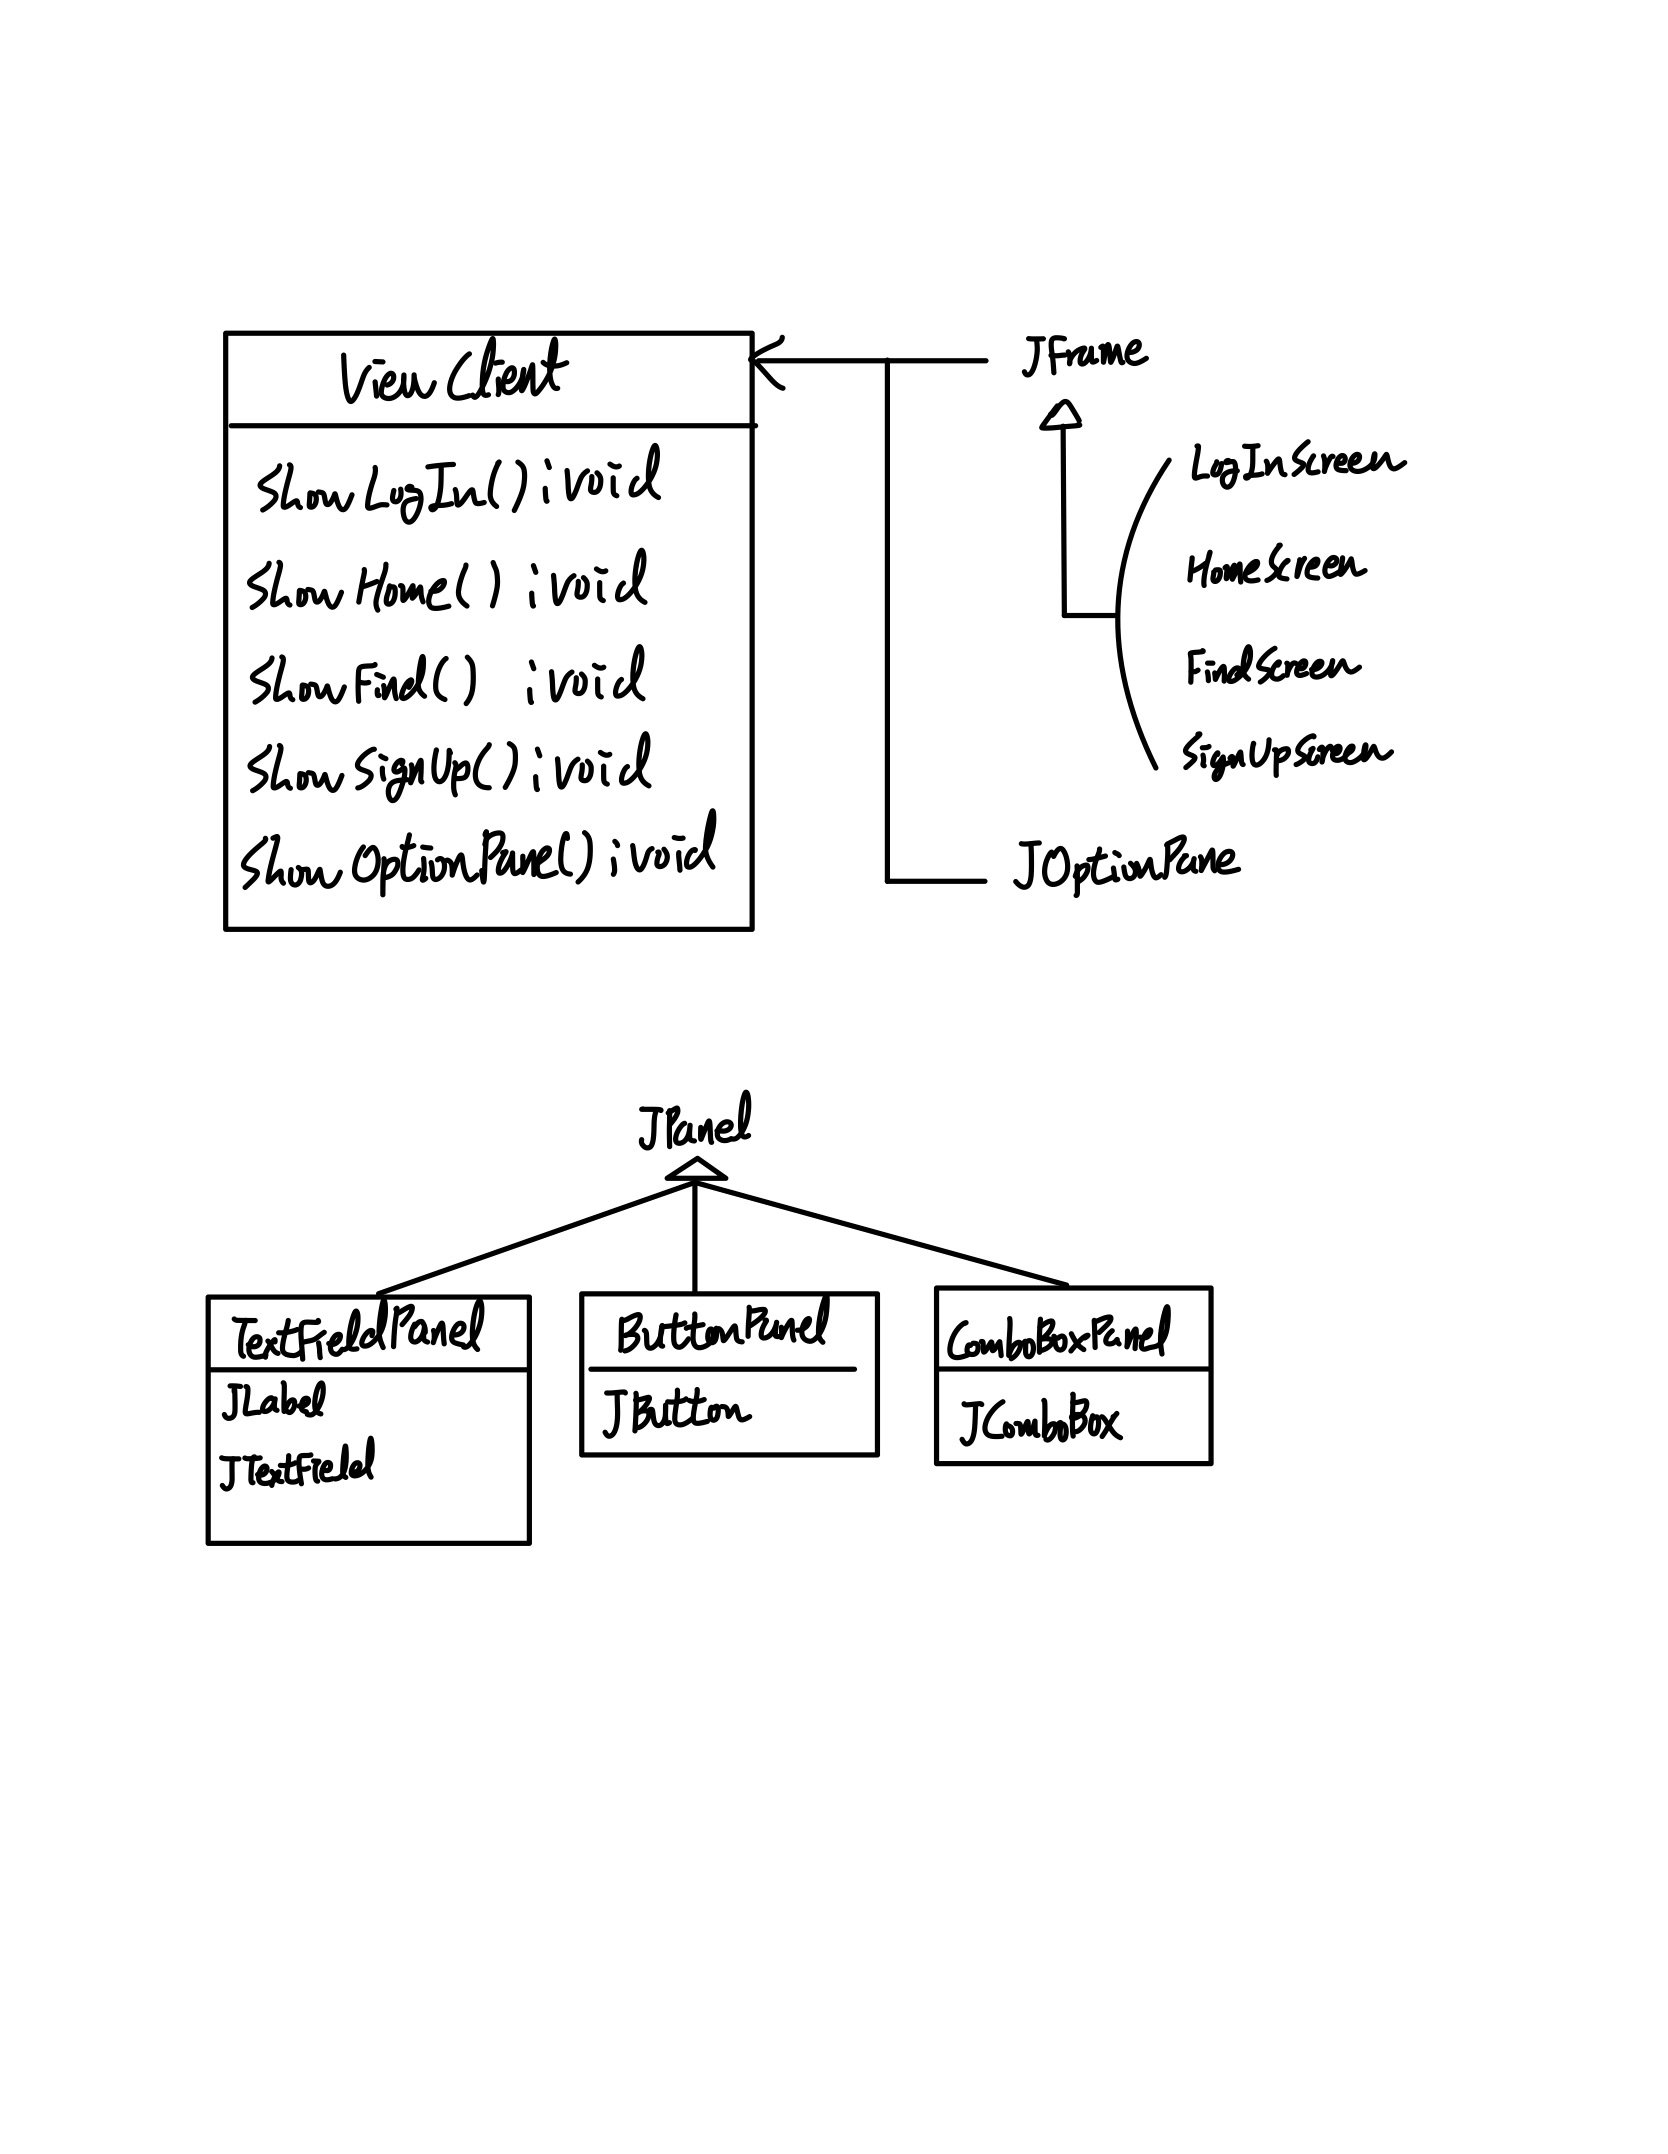 View Client
Show LogIn() : void
Show Home() : void
Show Find() : void
Show SignUp() : void
Show OptionPane() : void
JFrame
LogInScreen
HomeScreen
FindScreen
SignUpScreen
JOptionPane
JPanel
TextFieldPanel
JLabel
JTextField
ButtonPanel
JButton
ComboBoxPanel
JComboBox